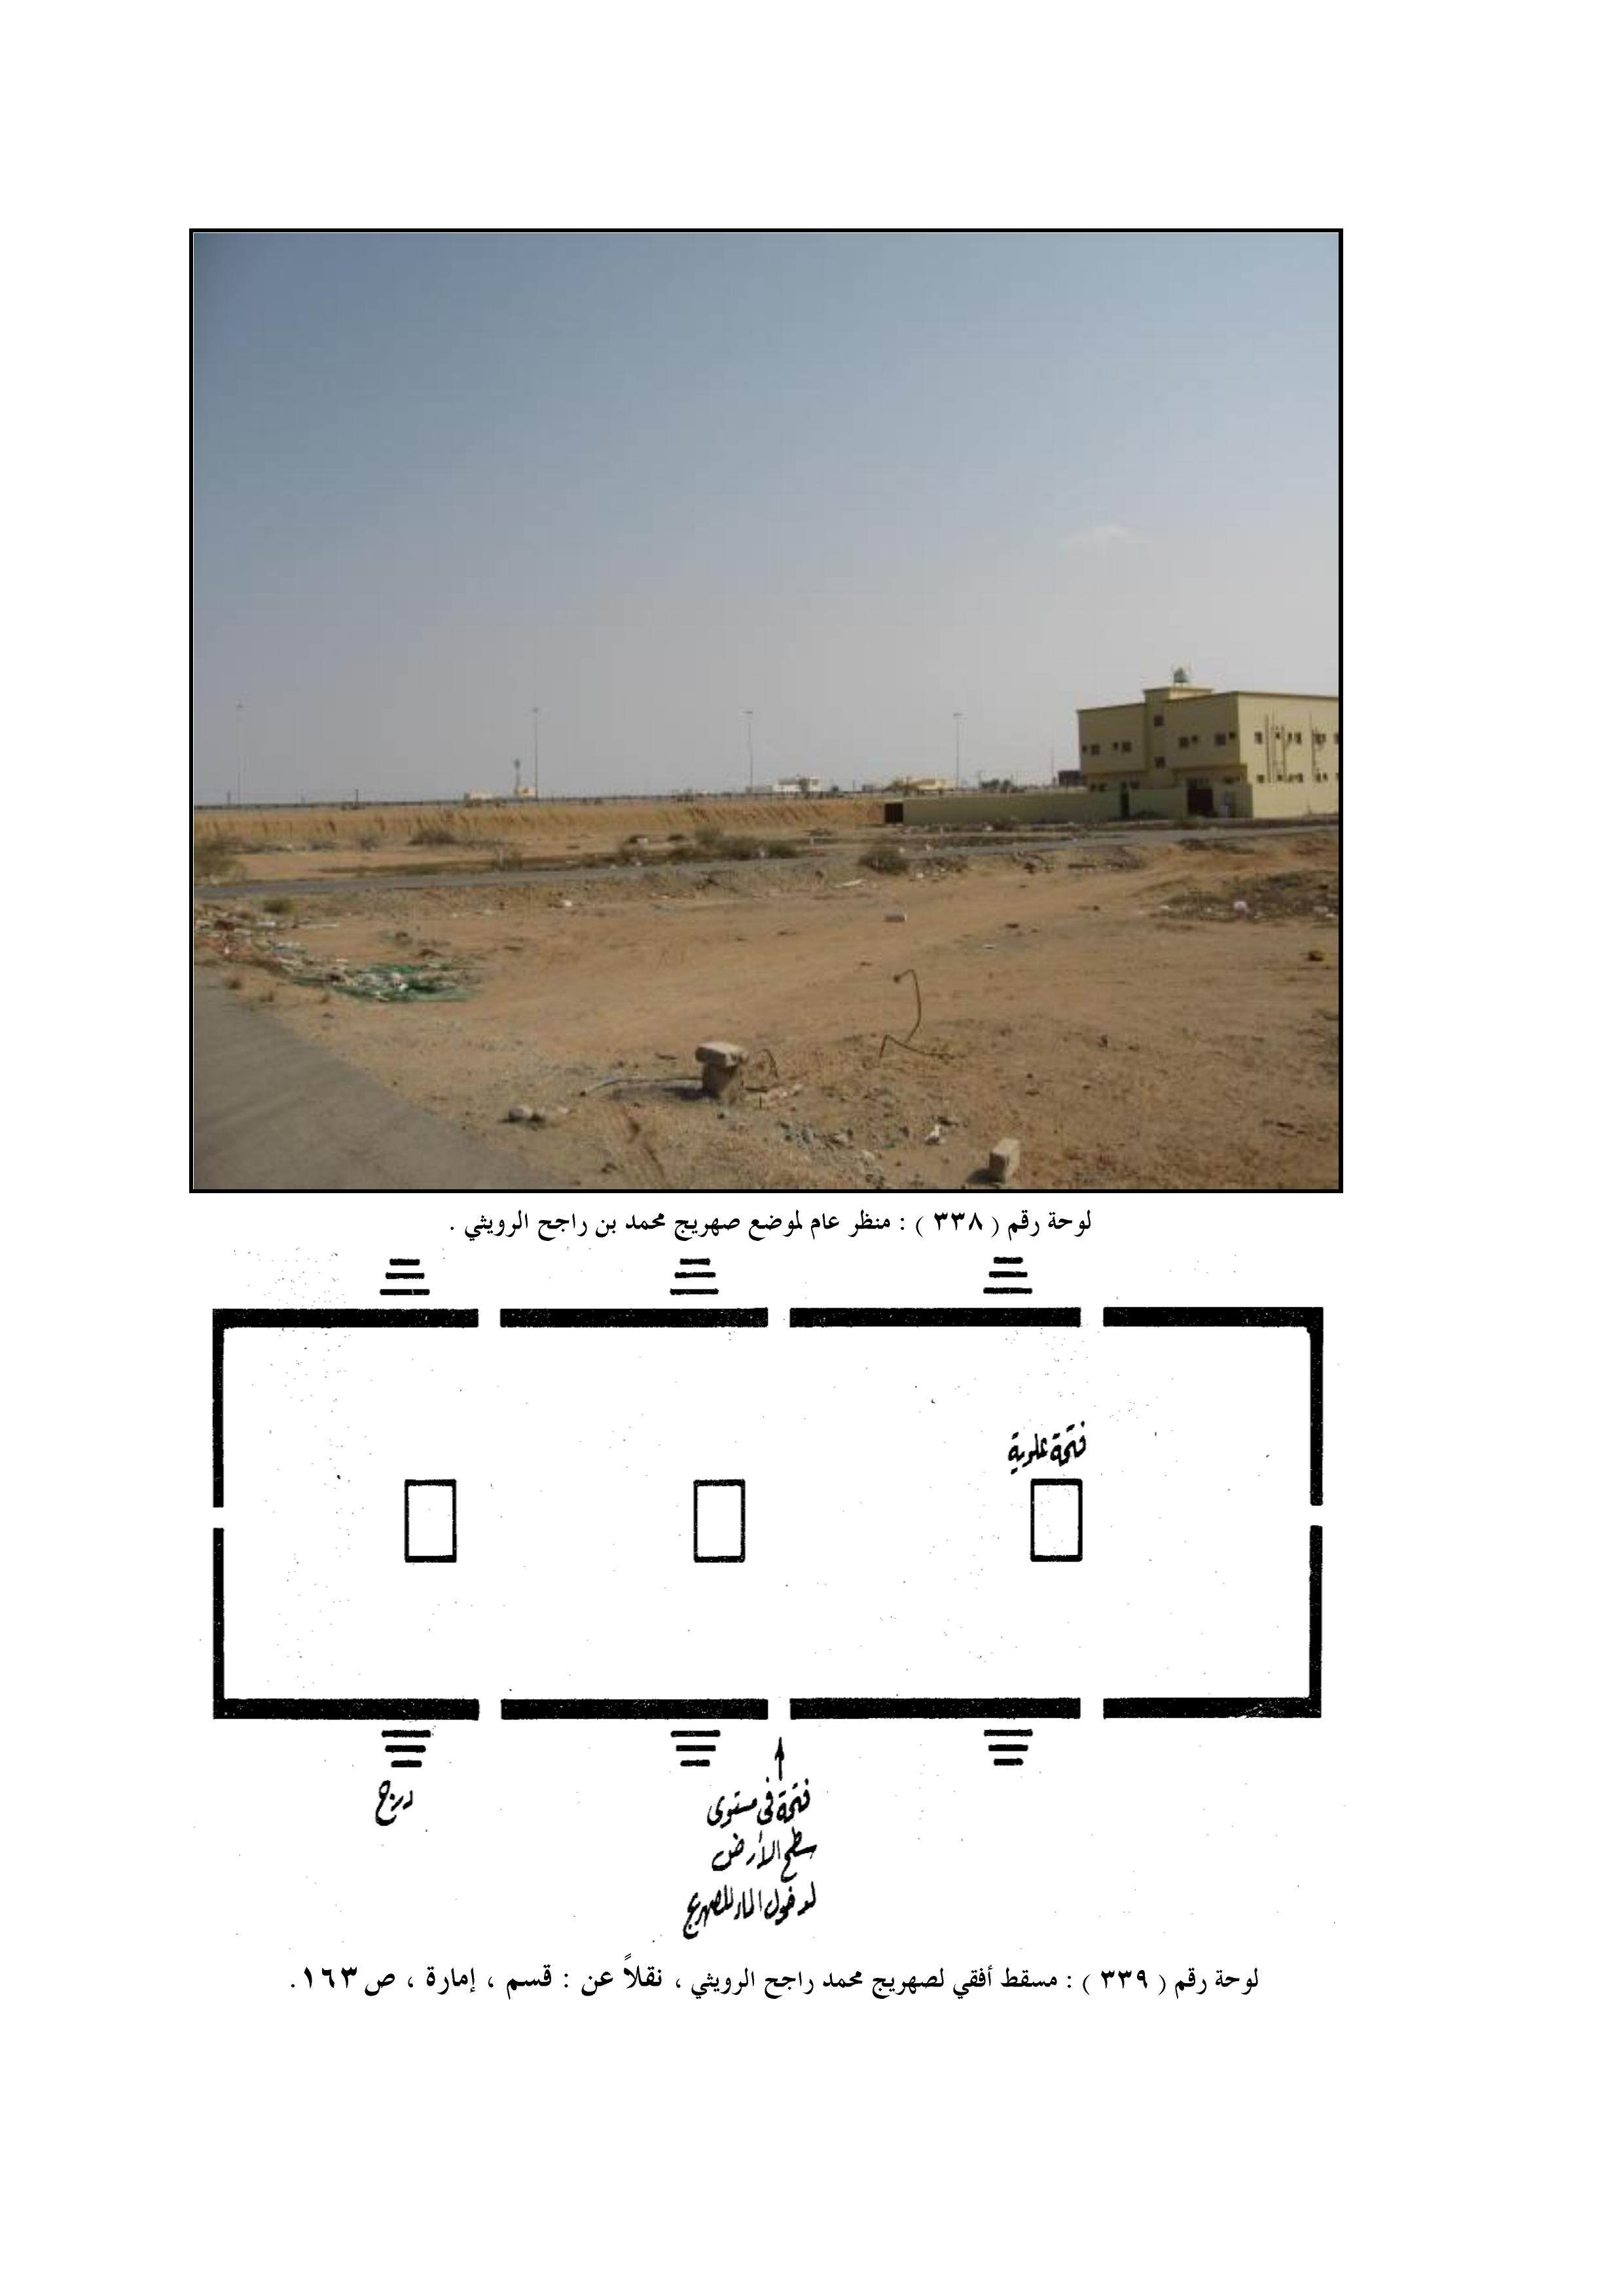 لوحة رقم ( ٣٣٨ ) : منظر عام لموضع صهريج محمد بن راجح الرويثي .
فتحة علوية
درج
فتحة في مستوى
سطح الأرض
لدخول الماء للصهريج
لوحة رقم ( ٣٣٩ ) : مسقط أفقي لصهريج محمد راجح الرويثي ، نقلاً عن : قسم ، إمارة ، ص ١٦٣ .